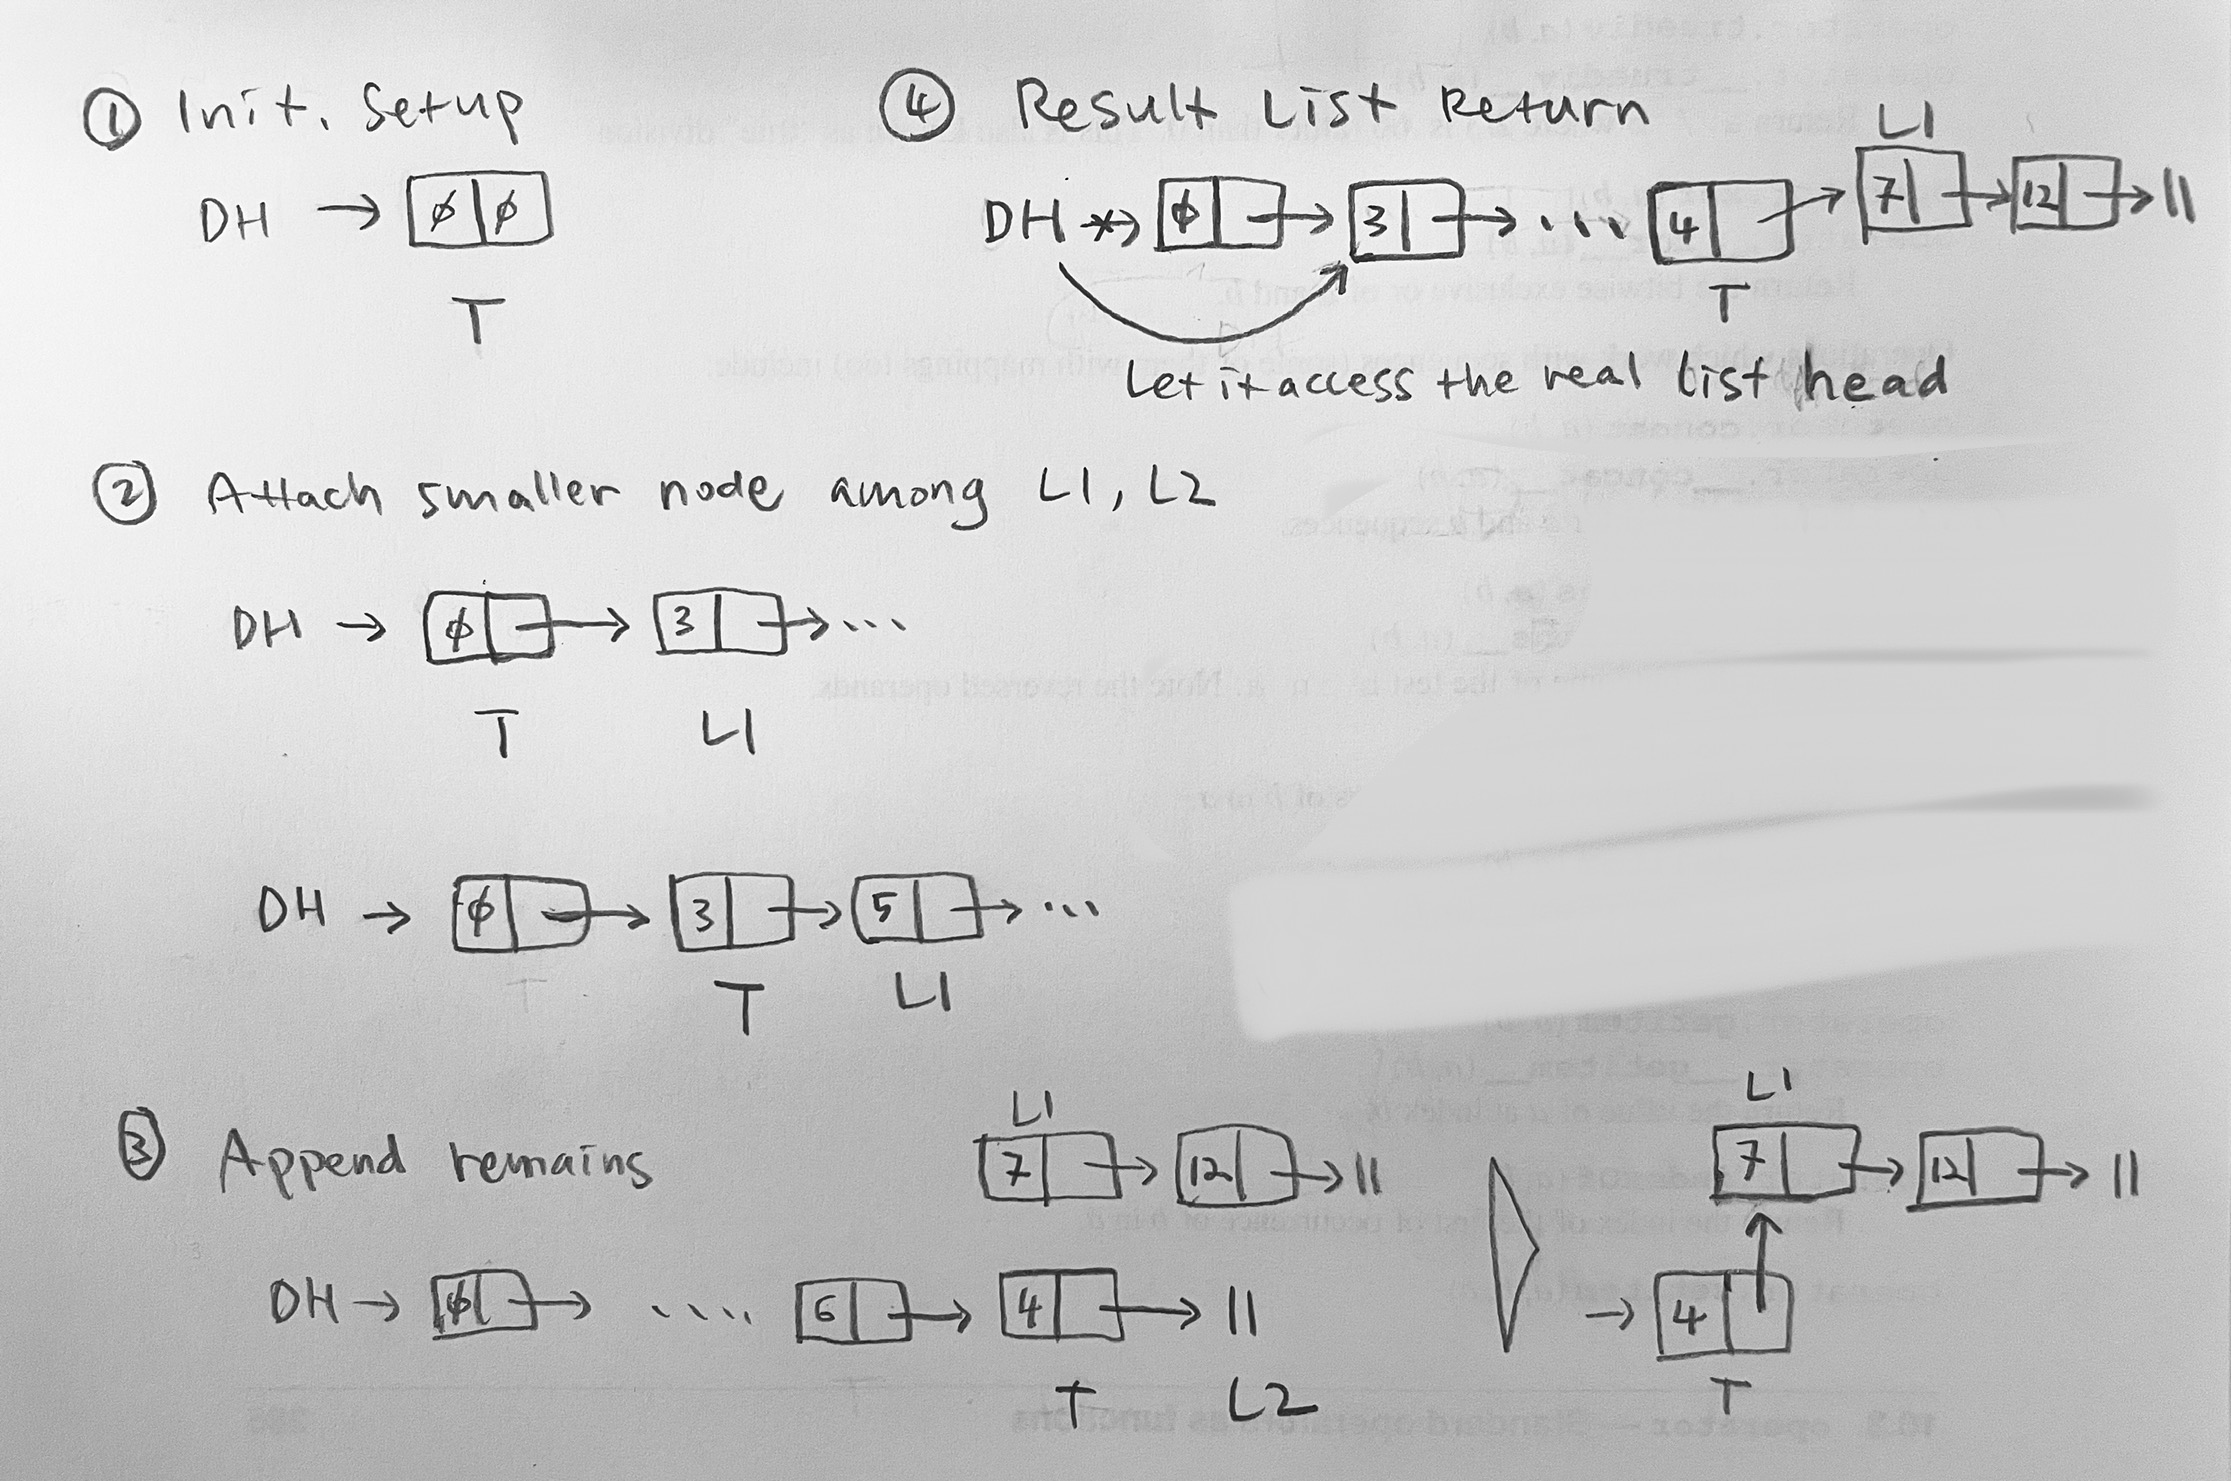 ① Init. Setup
DH → ϕ ϕ
T
④ Result List Return
L1
DH → ϕ → 3 → ... 4 → 7 → 12 → ||
T
Let it access the real list head
② Attach smaller node among L1, L2
DH → ϕ → 3 → ...
T L1
DH → ϕ → 3 → 5 → ...
T L1
③ Append remains
L1
7 → 12 → ||
DH → ϕ → .... 6 → 4 → ||
T L2
L1
7 → 12 → ||
→ 4
T